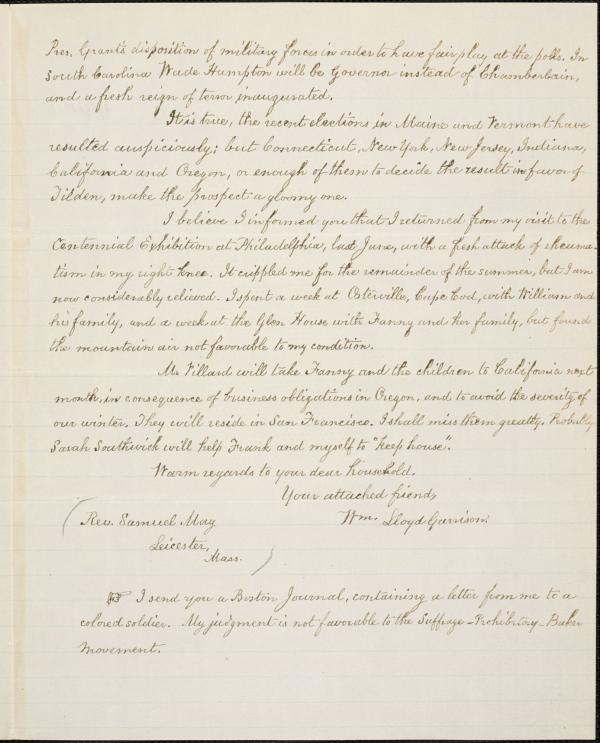 Pres. Grant's disposition of military forces in order to have fair play at the polls. In
South Carolina Wade Hampton will be Governor instead of Chamberlain,
and a fresh reign of terror inaugurated.
It is true, the recent elections in Maine and Vermont have
resulted auspiciously; but Connecticut, New York, New Jersey, Indiana,
California and Oregon, or enough of them to decide the result in favor of
Tilden, make the prospect a gloomy one.
I believe I informed you that I returned from my visit to the
Centennial Exhibition at Philadelphia, last June, with a fresh attack of rheuma-
tism in my right knee. It crippled me for the remainder of the summer, but I am
now considerably relieved. I spent a week at Osterville, Cape Cod, with William and
his family, and a week at the Glen House with Fanny and her family, but found
the mountain air not favorable to my condition.
Mr. Villard will take Fanny and the children to California next
month, in consequence of business obligations in Oregon, and to avoid the severity of
our winter. They will reside in San Francisco. I shall miss them greatly. Probably
Sarah Southwick will help Frank and myself to "keep house".
Warm regards to your dear household.
Your attached friend,
Wm. Lloyd Garrison.
(Rev. Samuel May
Leicester,
Mass.)
☞ I send you a Boston Journal, containing a letter from me to a
colored soldier. My judgment is not favorable to the Suffrage-Prohibitory-Baker
movement.